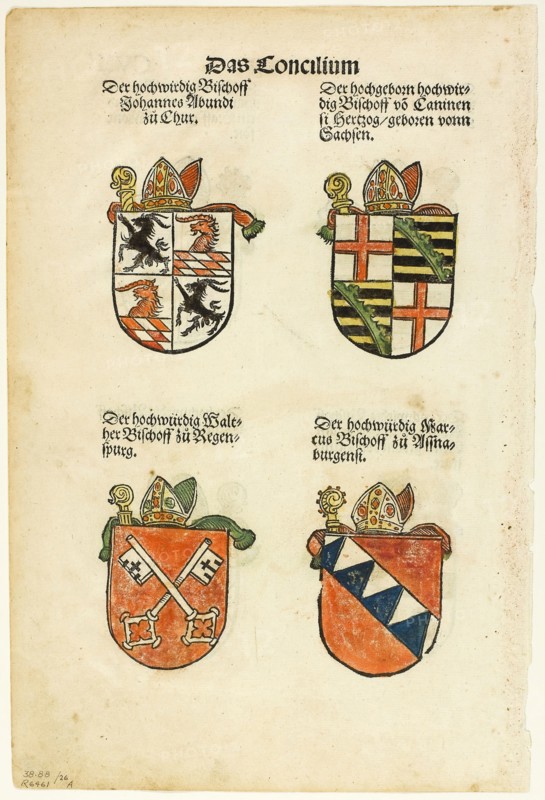 Das Concilium
Der hochwirdig Bischoff
Johannes Abundi
zů Chur.
Der hochgeborn hochwir⸗
dig Bischoff vō Caminen
si Hertzog/geboren vonn
Sachsen.
Der hochwürdig Walt⸗
her Bischoff zů Regen⸗
spurg.
Der hochwürdig Mar⸗
cus Bischoff zů Assna⸗
burgensi.
38·88 /26
R6461 A